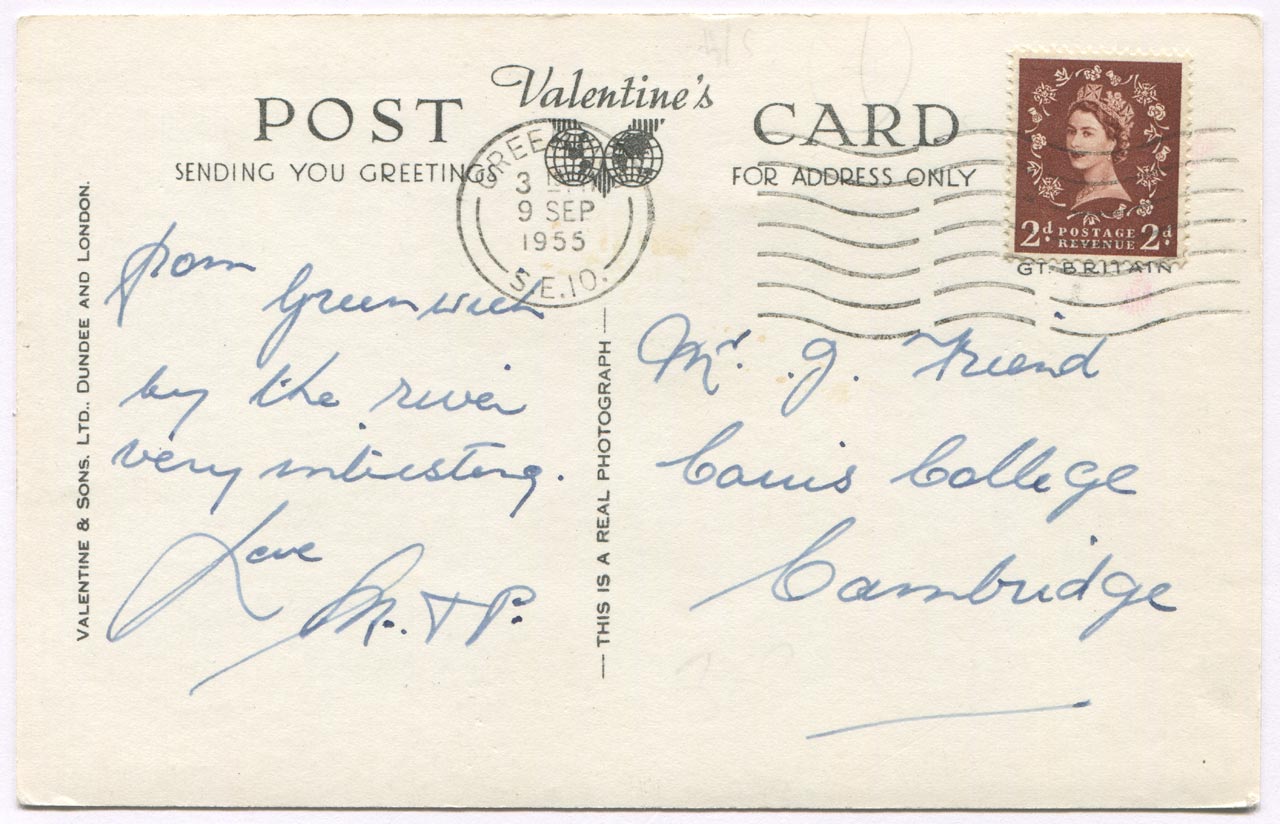 Valentine's
POST CARD
SENDING YOU GREETINGS
FOR ADDRESS ONLY
GREE
3
9 SEP
1955
S.E.10.
2d. POSTAGE REVENUE 2d.
GT. BRITAIN
VALENTINE & SONS. LTD., DUNDEE AND LONDON.
from
Greenwich
by the river
very interesting.
Love
M. + P.
— THIS IS A REAL PHOTOGRAPH —
Mr. J. Friend
Caius College
Cambridge